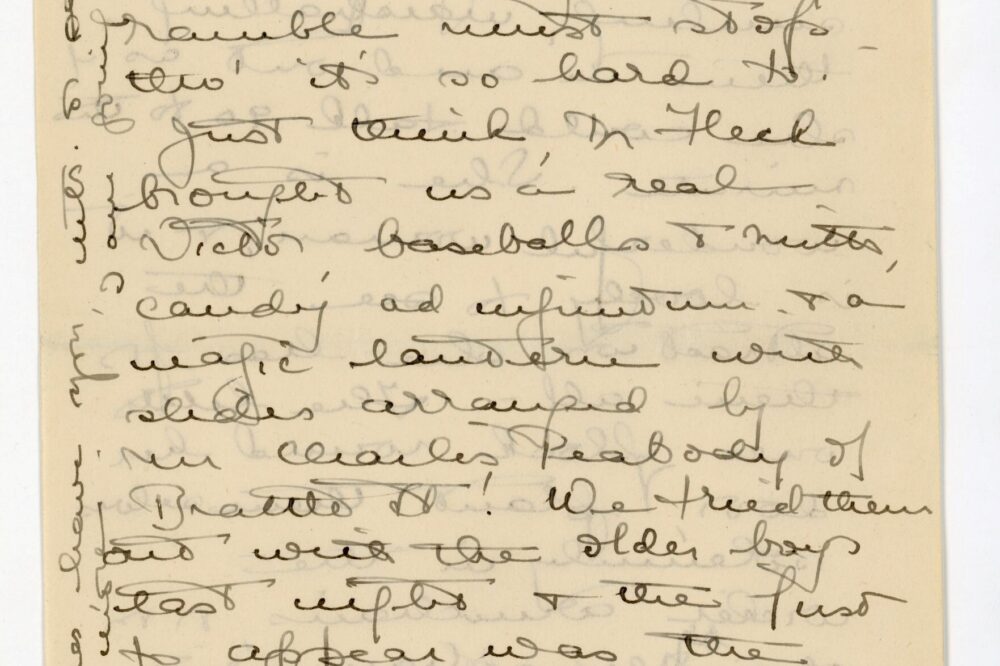 ramble must stop
tho' it's so hard to.
Just think, Mr Fleck
brought us a real
Victor baseballs & mitts,
candy ad infinitum & a
magic lantern with
slides arranged by
Mr Charles Peabody of
Brattle St! We tried them
out with the older boys
last night & the first
to appear was the